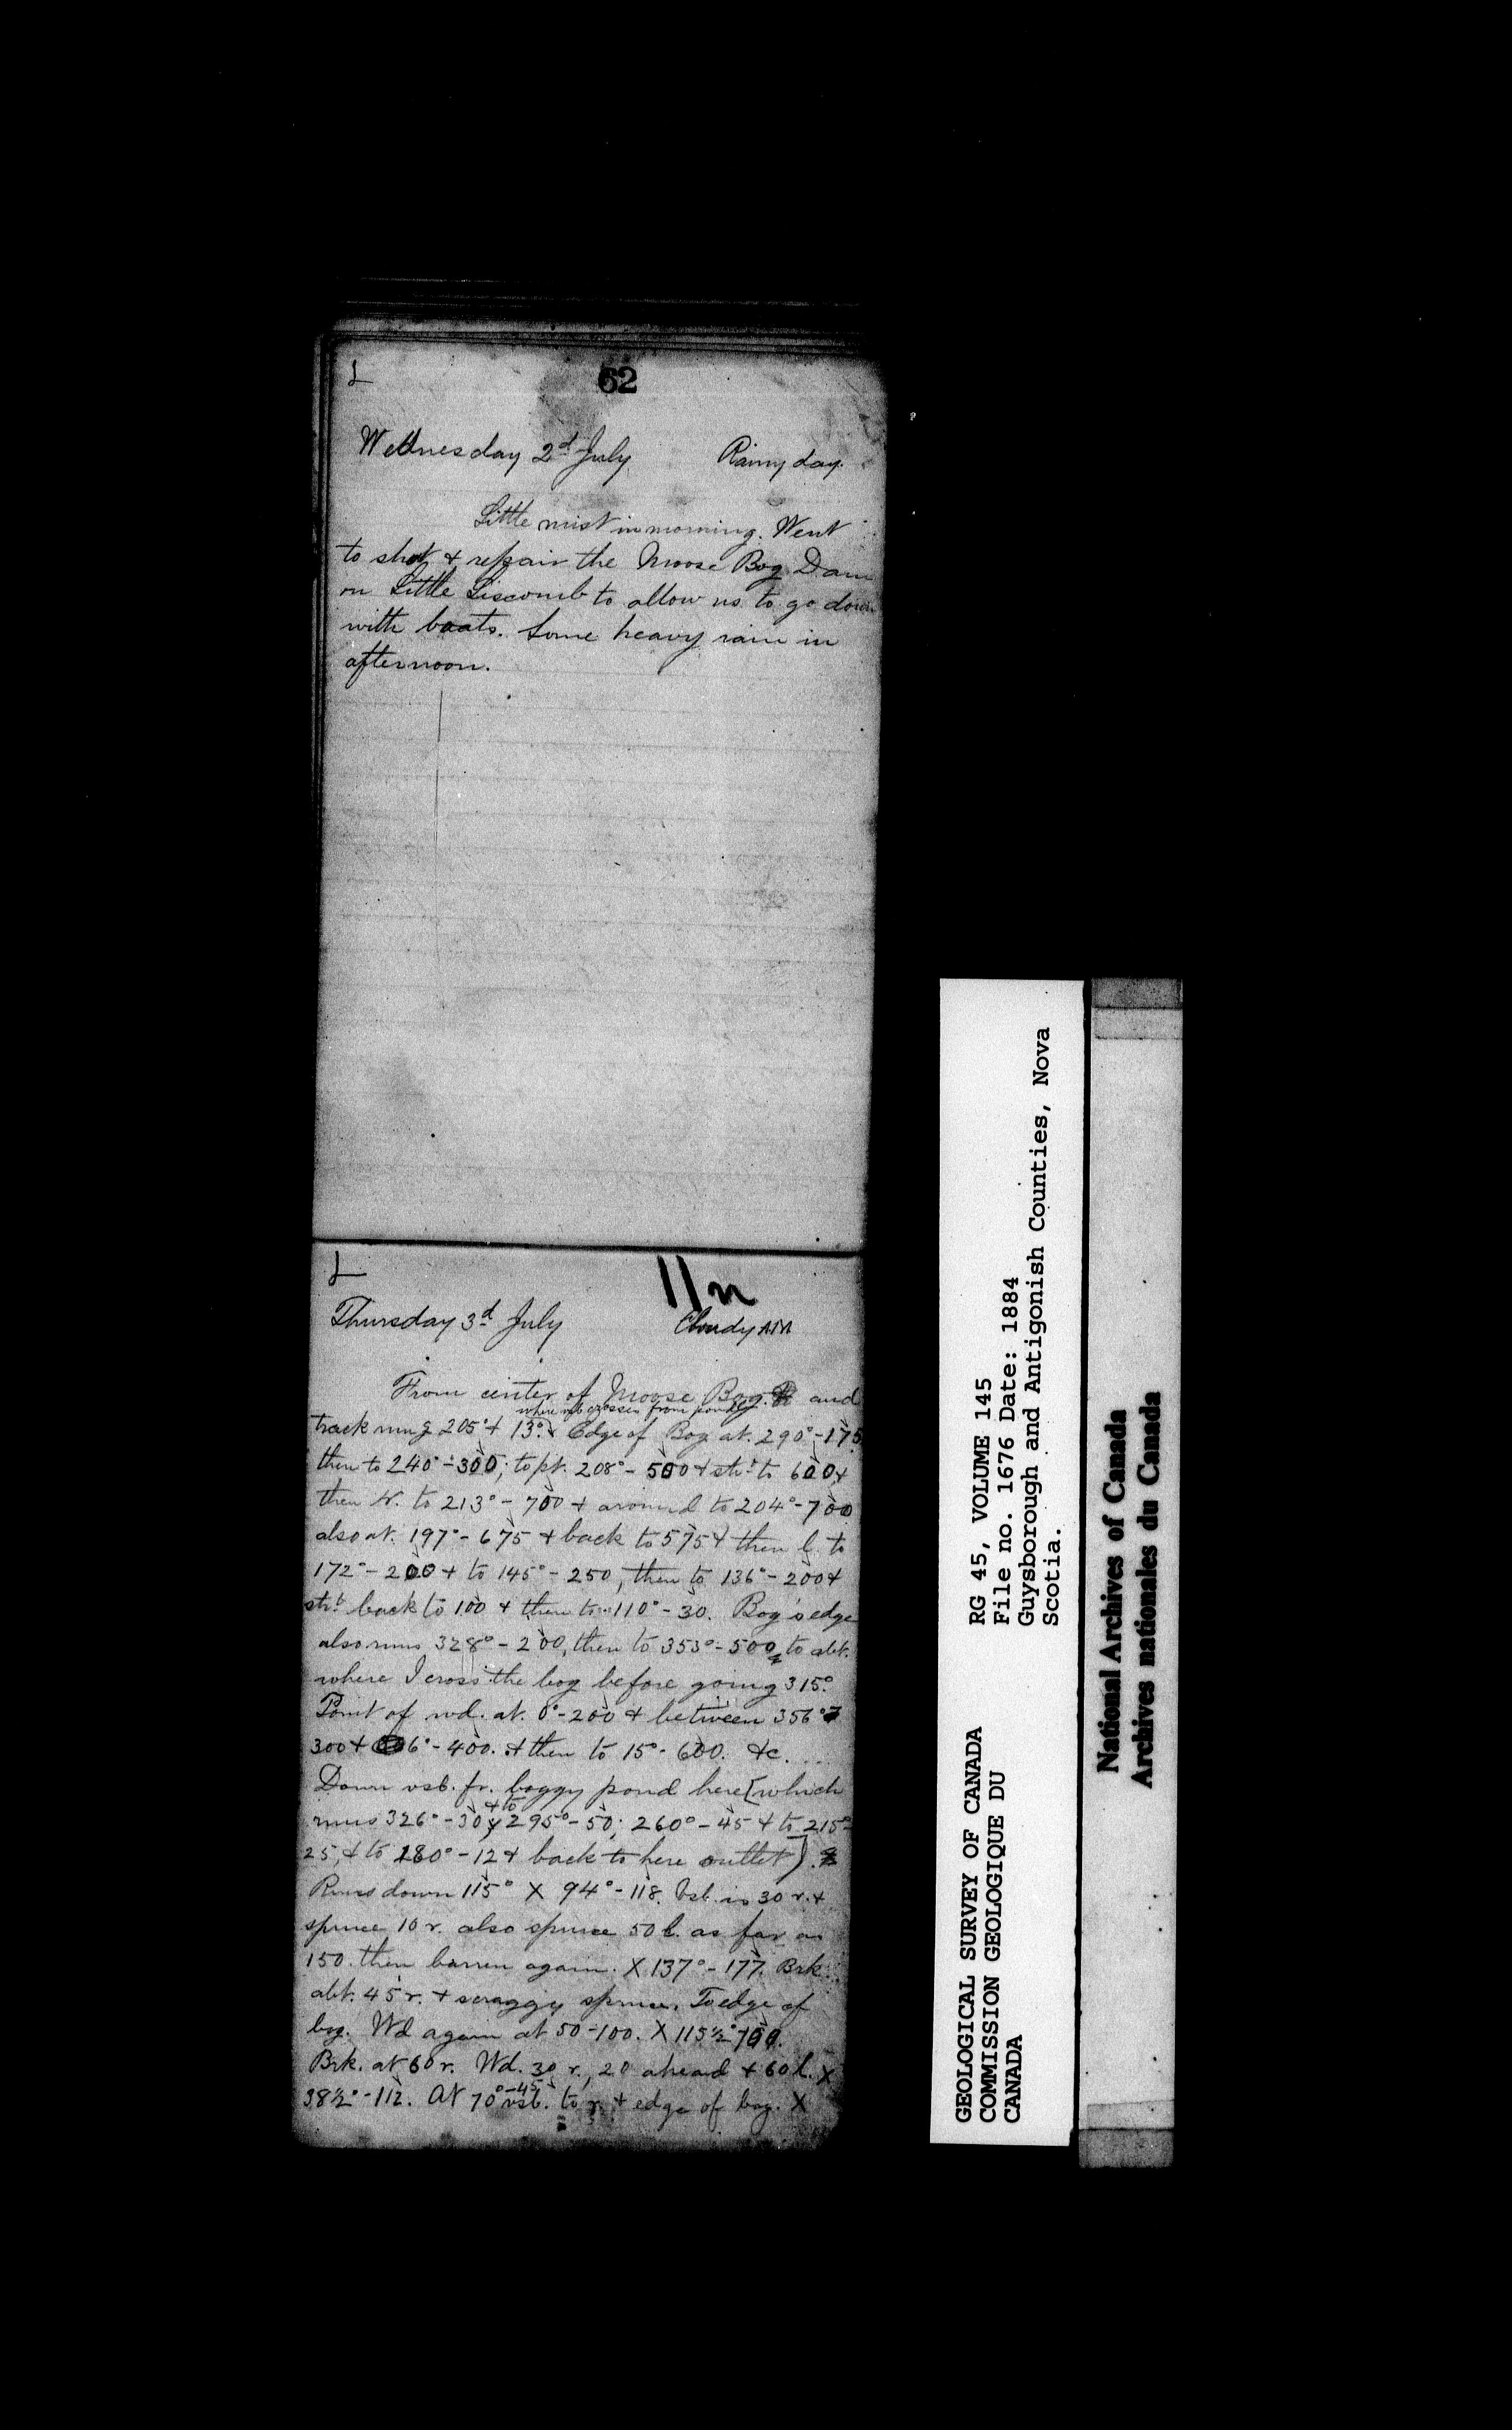 L
62
Wednesday 2d July Rainy day.
Little mist in morning. Went
to shut & repair the Moose Bog Dam
on Little Liscomb to allow us to go down
with boats. Some heavy rain in
afternoon.
L
11n
Thursday 3d July Cloudy AM
From center of Moose Bog. and
where vsb crosses from pond
track rung 205° + 13°. Edge of Bog at. 290° - 175
then to 240° - 300; to pt. 208° - 500 + strt. to 600 +
then r. to 213° - 700 + around to 204° - 700
also at. 197° - 675 + back to 575 + then l. to
172° - 200 + to 145° - 250, then to 136° - 200 +
strt. back to 100 + then to 110° - 30. Bog's edge
also runs 328° - 200, then to 353° - 500, to abt.
where I cross the bog before going 315°
Point of wd. at. 0° - 200 + between 356°
300 + 6° - 400. + then to 15° - 600. &c.
Down vsb. fr. boggy pond here [which
runs 326° - 30, + to 295° - 50; 260° - 45 + to 215°
25, + to 180° - 12 + back to here outlet).
Runs down 115° X 94° - 118. Vsb. is 30 r. +
spruce 10 r. also spruce 50 l. as far as
150. then barren again. X 137° - 177. Brk.
abt. 45 r. + scraggy spruce. To edge of
bog. Wd again at 50 - 100. X 115½° 100.
Brk. at 60 r. Wd. 30 r., 20 ahead + 60 l. X
38½° - 112. At 70° - 45 vsb. to r. + edge of bog. X
GEOLOGICAL SURVEY OF CANADA
COMMISSION GEOLOGIQUE DU
CANADA
RG 45, VOLUME 145
File no. 1676 Date: 1884
Guysborough and Antigonish Counties, Nova
Scotia.
National Archives of Canada
Archives nationales du Canada